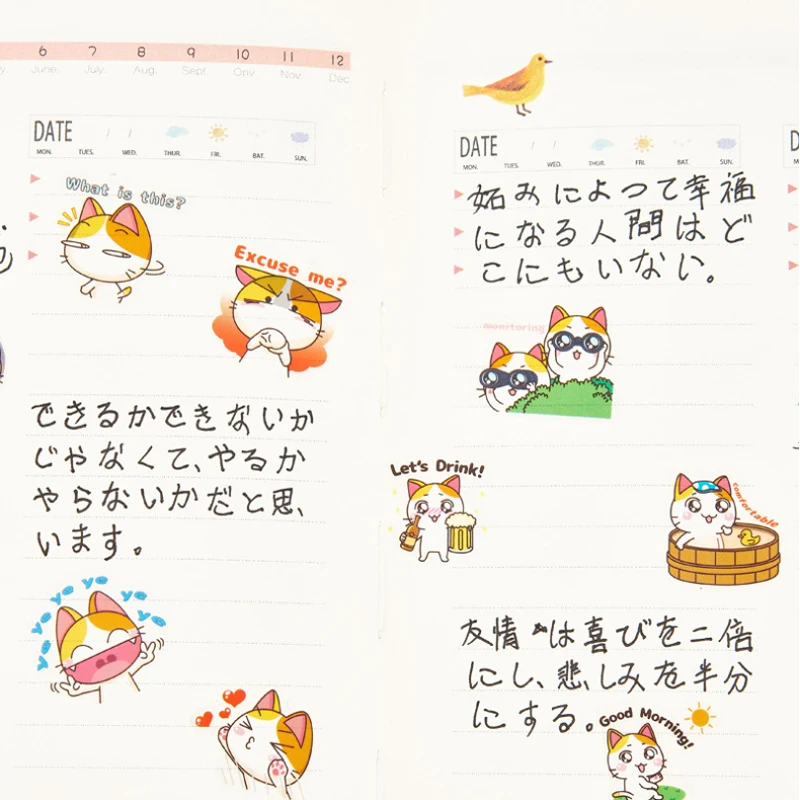 6 7 8 9 10 11 12
June. July. Aug. Sept. Nov. Dec
DATE / /
MON. TUES. WED. THUR. FRI. SAT. SUN.
What is this?
Excuse me?
できるかできないか
じゃなくて、やるか
やらないかだと思、
います。
yo yo yo yo yo yo yo
DATE / /
MON. TUES. WED. THUR. FRI. SAT. SUN.
妬みによって幸福
になる人間はど
こにもいない。
monitoring
Let's Drink!
comfortable
友情は喜びを二倍
にし、悲しみを半分
にする。
Good Morning!